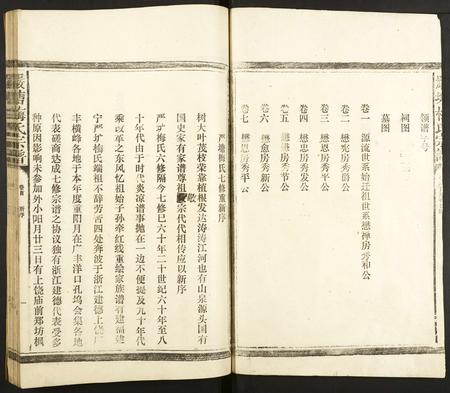 领谱字号
祠图
墓图
卷一 源流世系始迁祖世系懋禅房秀和公
卷二 懋宪房秀爵公
卷三 懋忠房秀发公
卷四 懋
卷五 懋
卷六 懋愈房秀新公
卷七 懋恩房秀平公
严塘梅氏七修重新序
树大叶茂枝荣靠植根发达涛涛江河也有山泉源头国有
国史家有家谱尊祖敬宗代代相传应以新序
严圹梅氏六修隔今七修已六十年二十世纪六十年至八
十年代由于时代炎凉谱事抛在一边不便提及九十年代
乘改革之东风忆祖始子孙牵红线重绘家族谱有建福建
宁严圹梅氏端祖不辞劳苦四处奔波于浙江建德上饶广
丰横峰各地于本年度重阳月在广丰洋口孔坞会集各地
代表磋商达成七修宗谱之协议独有浙江建德代表受多
种原因影响未参加外小阳月廿三日有上饶庙前郑坊枫
严塘梅氏宗谱
卷首 新序
一